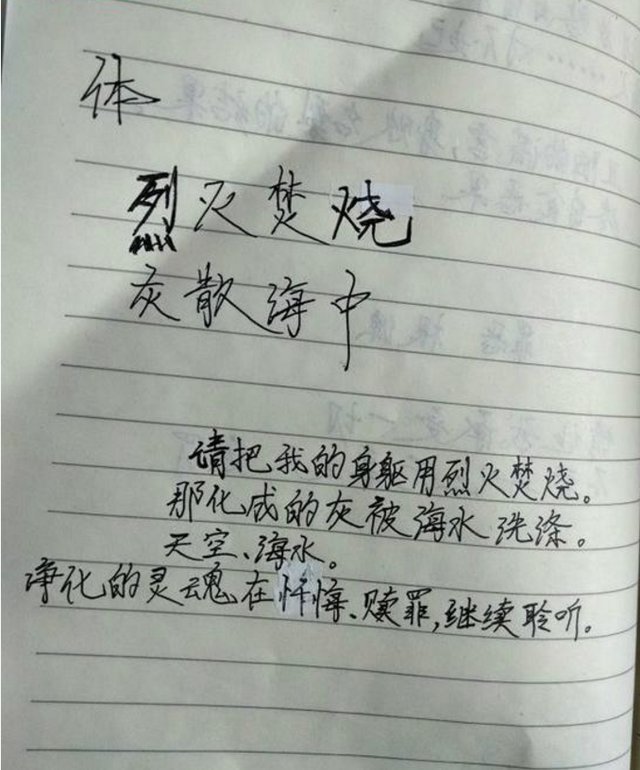 体
烈火焚烧
灰散海中
请把我的身躯用烈火焚烧。
那化成的灰被海水洗涤。
天空、海水。
净化的灵魂在忏悔、赎罪,继续聆听。